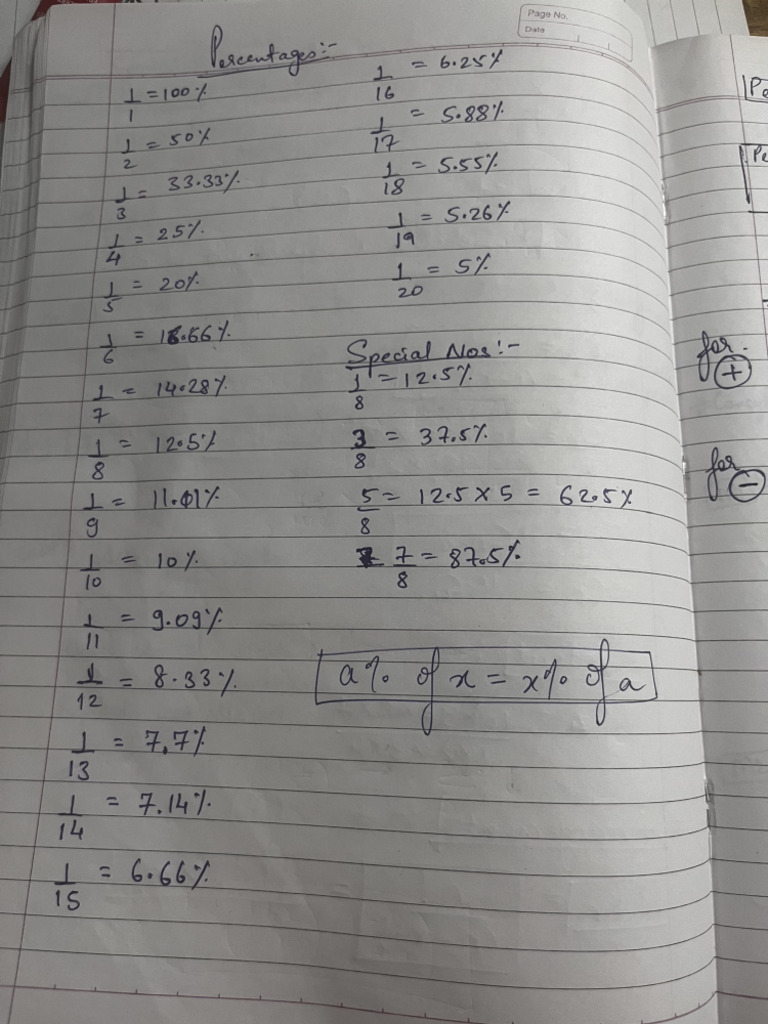 Page No.
Date
Percentages:-
1/1 = 100%
1/2 = 50%
1/3 = 33.33%
1/4 = 25%
1/5 = 20%
1/6 = 16.66%
1/7 = 14.28%
1/8 = 12.5%
1/9 = 11.01%
1/10 = 10%
1/11 = 9.09%
1/12 = 8.33%
1/13 = 7.7%
1/14 = 7.14%
1/15 = 6.66%
1/16 = 6.25%
1/17 = 5.88%
1/18 = 5.55%
1/19 = 5.26%
1/20 = 5%
Special Nos:-
1/8 = 12.5%
3/8 = 37.5%
5/8 = 12.5 × 5 = 62.5%
7/8 = 87.5%
a% of x = x% of a
Pe
Pe
for
+
for
−